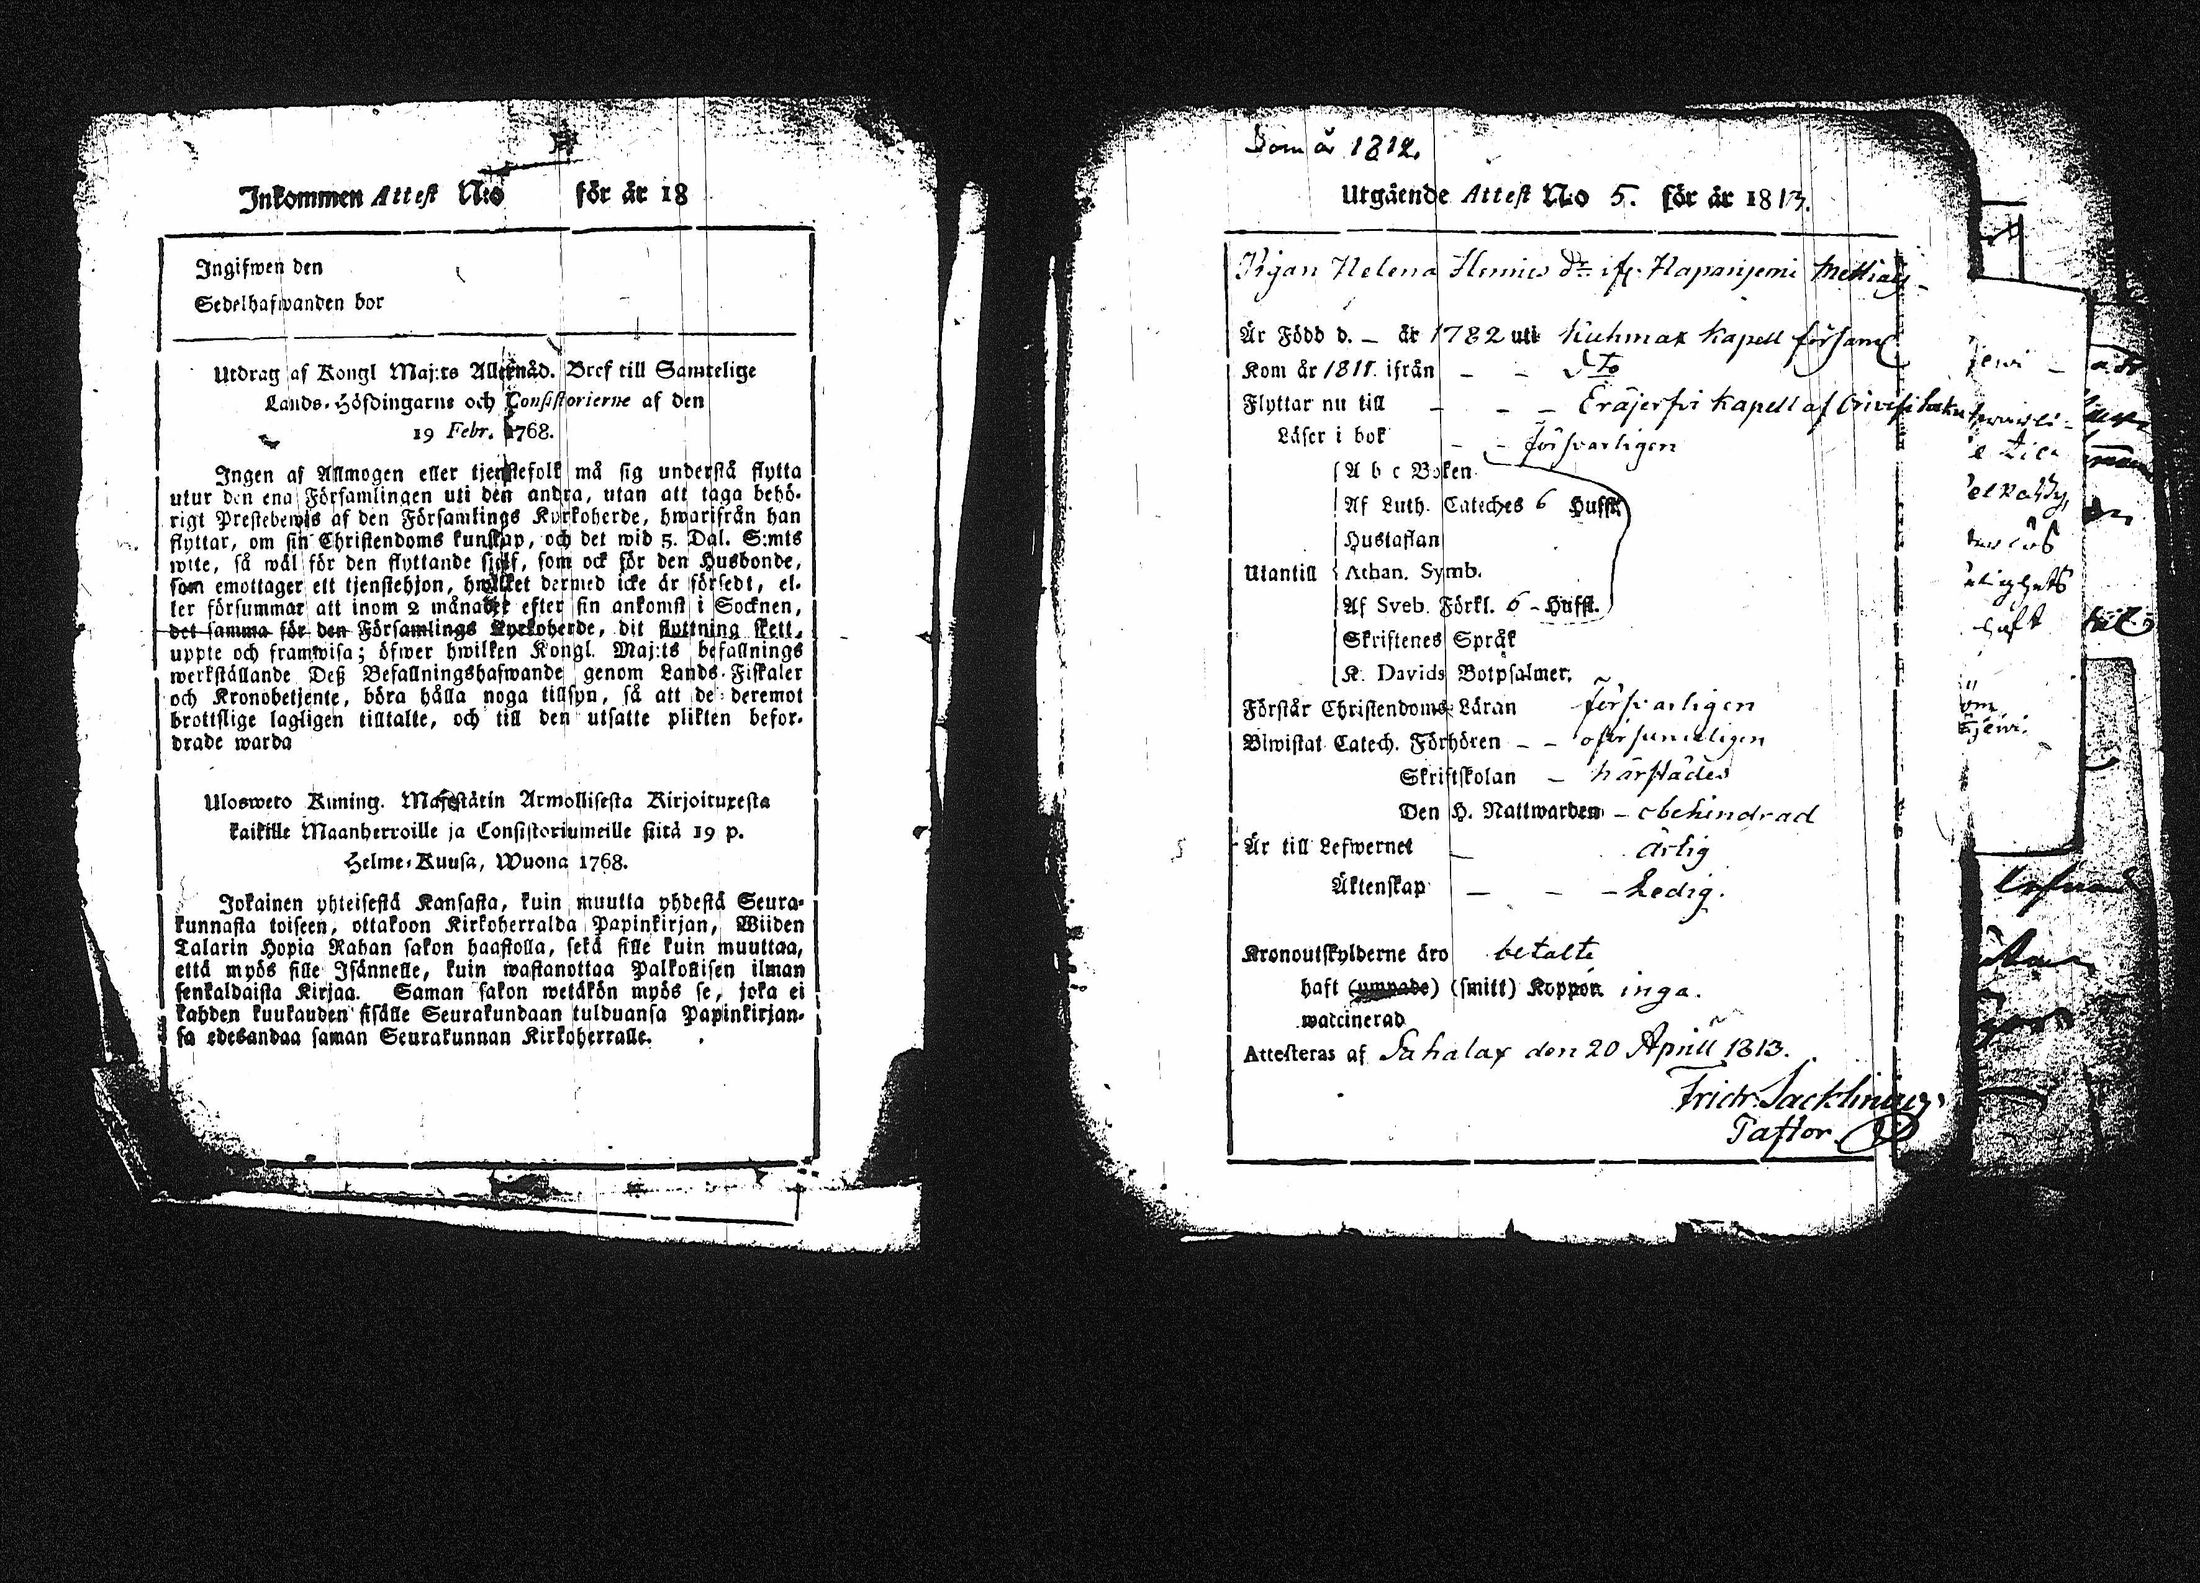 Inkommen Attest N:o för år 18
Ingifwen den
Sedelhafwanden bor
Utdrag af Kongl Maj:ts Allernåd. Bref till Samtelige
Lands-Höfdingarne och Consistorierne af den
19 Febr. 1768.
Ingen af Allmogen eller tjenstefolk må sig understå flytta
utur den ena Församlingen uti den andra, utan att taga behö-
rigt Prestebewis af den Församlings Kyrkoherde, hwarifrån han
flyttar, om sin Christendoms kunskap, och det wid 5. Dal. S:mts
wite, så wäl för den flyttande sjelf, som ock för den Husbonde,
som emottager ett tjenstehjon, hwilket dermed icke är försedt, el-
ler försummar att inom 2 månader efter sin ankomst i Socknen,
det samma för den Församlings Kyrkoherde, dit flyttning skett,
uppte och framwisa; öfwer hwilken Kongl. Maj:ts befallnings
werkställande Deß Befallningshafwande genom Lands-Fiskaler
och Kronobetjente, böra hålla noga tillsyn, så att de deremot
brottslige lagligen tilltalte, och till den utsatte plikten befor-
drade warda
Uloswetо Kuning. Majestätin Armollisesta Kirjoituxesta
kaikille Maanherroille ja Consistoriumeille siitä 19 p.
Helme-Kuusa, Wuona 1768.
Jokainen yhteisestä Kansasta, kuin muutta yhdestä Seura-
kunnasta toiseen, ottakoon Kirkoherralda Papinkirjan, Wiiden
Talarin Hopia Rahan sakon haastolla, sekä sille kuin muuttaa,
että myös sille Isännelle, kuin wastanottaa Palkollisen ilman
senkaldaista Kirjaa. Saman sakon wetäkön myös se, joka ei
kahden kuukauden sisälle Seurakundaan tulduansa Papinkirjan-
sa edesandaa saman Seurakunnan Kirkoherralle.
Dom år 1812.
Utgående Attest N:o 5. för år 1813.
Pigan Helena Henrics dr. ifr. Hapaniemi
Är Född d. – år 1782 uti Kuhmax Kapell församl
Kom år 1811. ifrån – – dto
Flyttar nu till – – – Eräjerfvi Kapell af Orivesi Sokn
Läser i bok – – försvarligen
A b c Boken
Af Luth. Cateches 6 Hufst.
Hustaflan
Utantill Athan. Symb.
Af Sveb. Förkl. 6 – Hufst.
Skriftenes Språk
K. Davids Botpsalmer.
Förstår Christendoms Läran försvarligen
Biwistat Catech. Förhören – – oförsumeligen
Skriftskolan – härstädes
Den H. Nattwarden – obehindrad
Är till Lefwernet – ärlig
Äktenskap – – – Ledig.
Kronoutskylderne äro betalte
haft (ympade) (smitt) Koppor inga.
waccinerad
Attesteras af Sahalax den 20 Aprill 1813.
Pastor